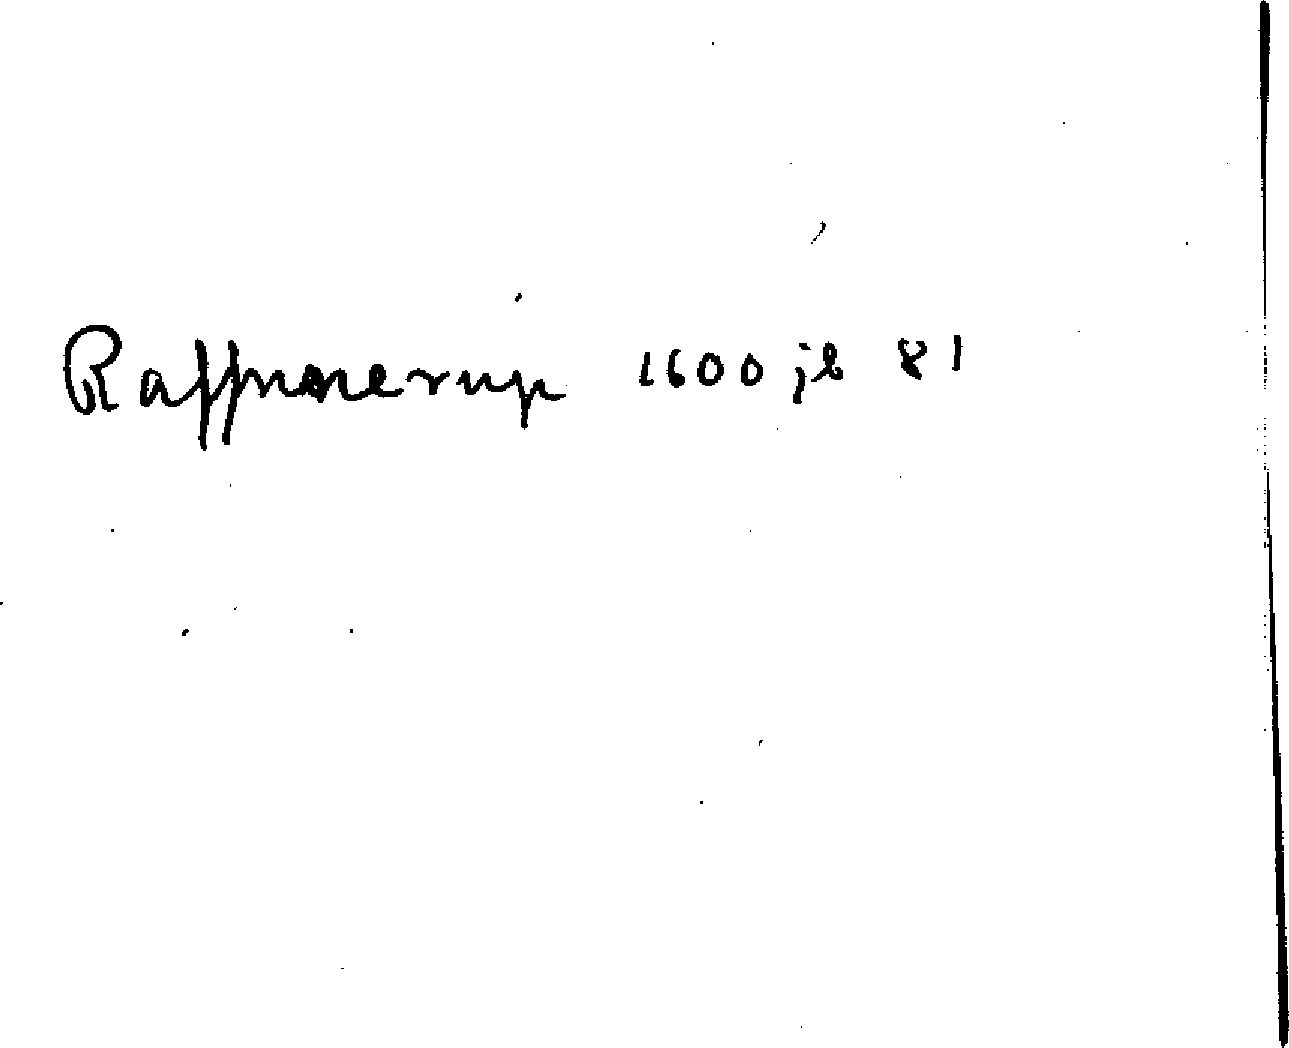 Raffnnerup 1600 jb 81